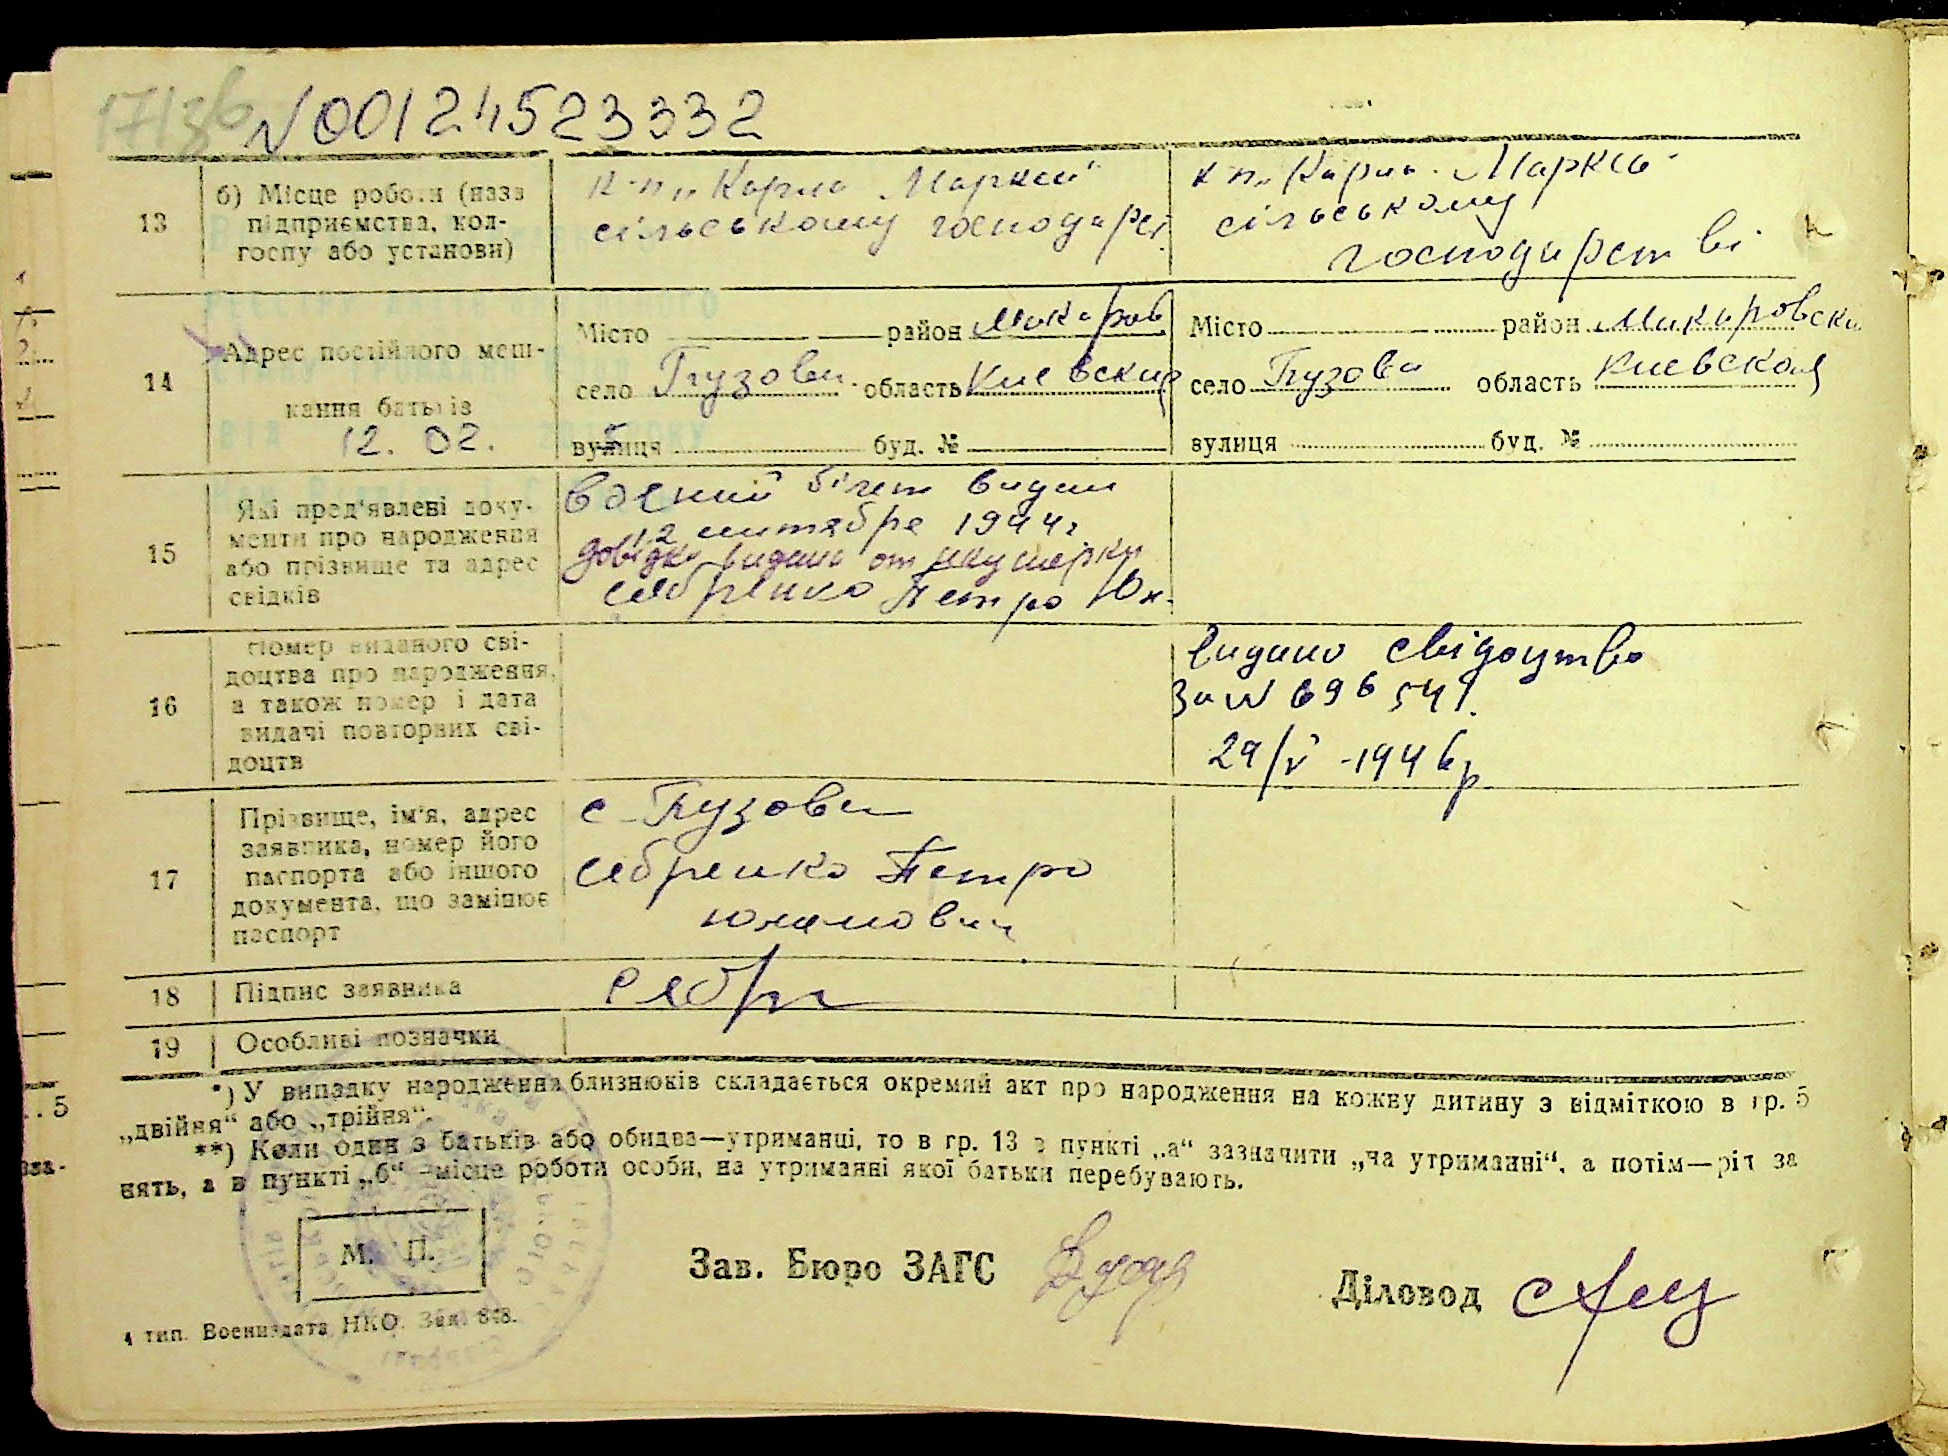 N00124523332
13
б) Місце роботи (назв
підприємства, кол-
госпу або установи)
к-п „Карла Маркса"
сільському господарс
к п „Карла Маркса
сільському
господарстві
14
Адрес постійного меш-
кання батьків
12. 02.
Місто район Макаров
село Грузька область Киевская
вулиця буд. №
Місто район Макаровски
село область Киевская
вулиця буд. №
15
Які пред'явлені доку-
менти про народження
або прізвище та адрес
свідків
воений білет видан
12 1944г
довідка видана от акушерки
Петро Юх.
16
Номер виданого сві-
доцтва про народження,
а також номер і дата
видачі повторних сві-
доцтв
видано свідоцтво
за N 696541.
29/V -1946р
17
Прізвище, ім'я, адрес
заявника, номер його
паспорта або іншого
документа, що замінює
паспорт
с.
Петро
18
Підпис заявника
19
Особливі позначки
*) У випадку народження близнюків складається окремий акт про народження на кожну дитину з відміткою в гр. 5
„двійня“ або „трійня“.
**) Коли один з батьків або обидва—утриманці, то в гр. 13 в пункті „а“ зазначити „на утриманні“, а потім—ріт за
нять, а в пункті „б“ —місце роботи особи, на утриманні якої батьки перебувають.
М. П.
Зав. Бюро ЗАГС
Діловод
4 тип. Воениздата НКО. Зак. 848.